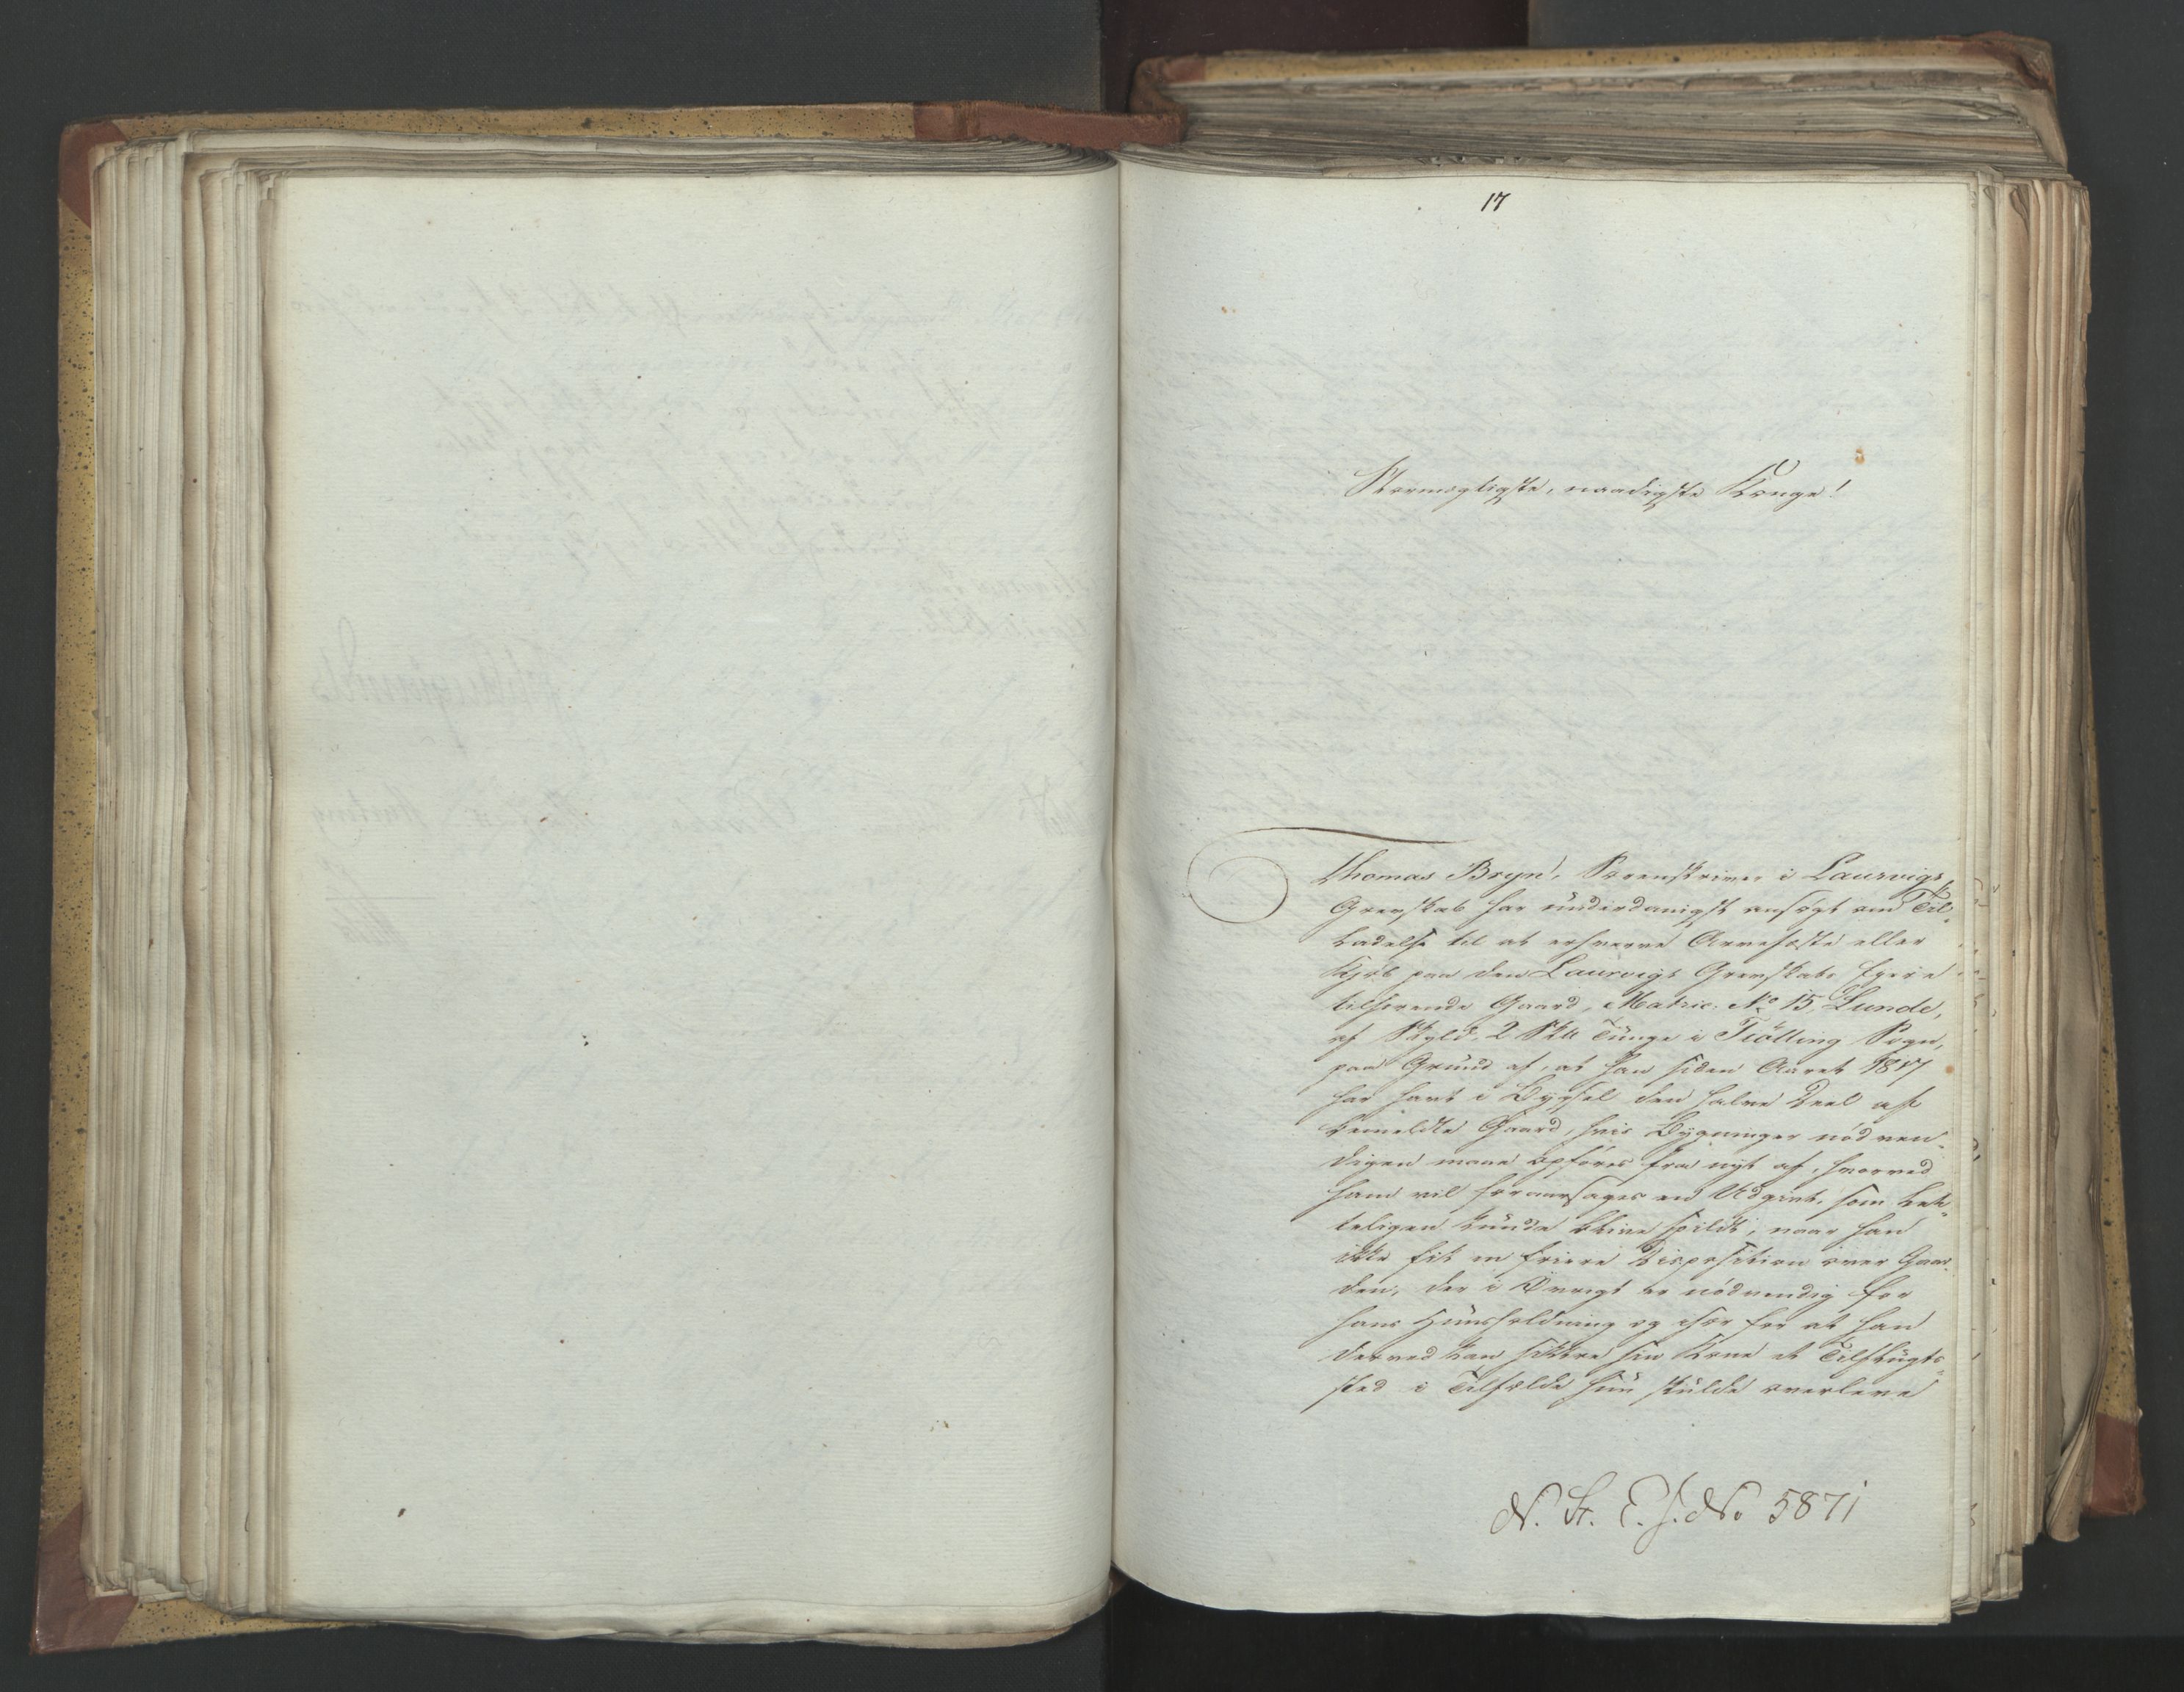 17
Stormægtigste, naadigste Konge!
Thomas Bryn, Sorenskriver i Laurvigs
Grevskab har underdanigst ansøgt om Til-
ladelse til at erhverve Arvefæste eller
Kjøb paa den Laurvigs Grevskabs Eiere
tilhørende Gaard, Matric. No 15, Lunde,
af Skyld, 2 Skt Tunge i Tiölling Sogn,
paa Grund af, at han siden Aaret 1817
har havt i Bÿxel den halve Deel af
bemeldte Gaard, hvis Bÿgninger nödven-
digen maae opföres fra nÿt af, hvorved
ham vil foraarsages en Udgivt, som let-
teligen kunde blive spildt, naar han
ikke fik en friere Disposition over Gaar-
den, der i Övrigt er nödvendig for
hans Huusholdning og især for at han
derved kan sikkre sin Kone et Tilflugts-
sted i Tilfælde hun skulde overleve
N. St. E. J. No 5871